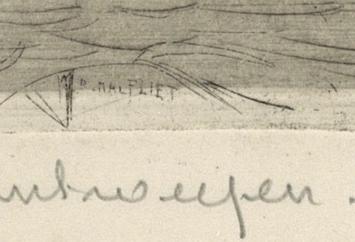 D. MALFLIET
ntwerpen.